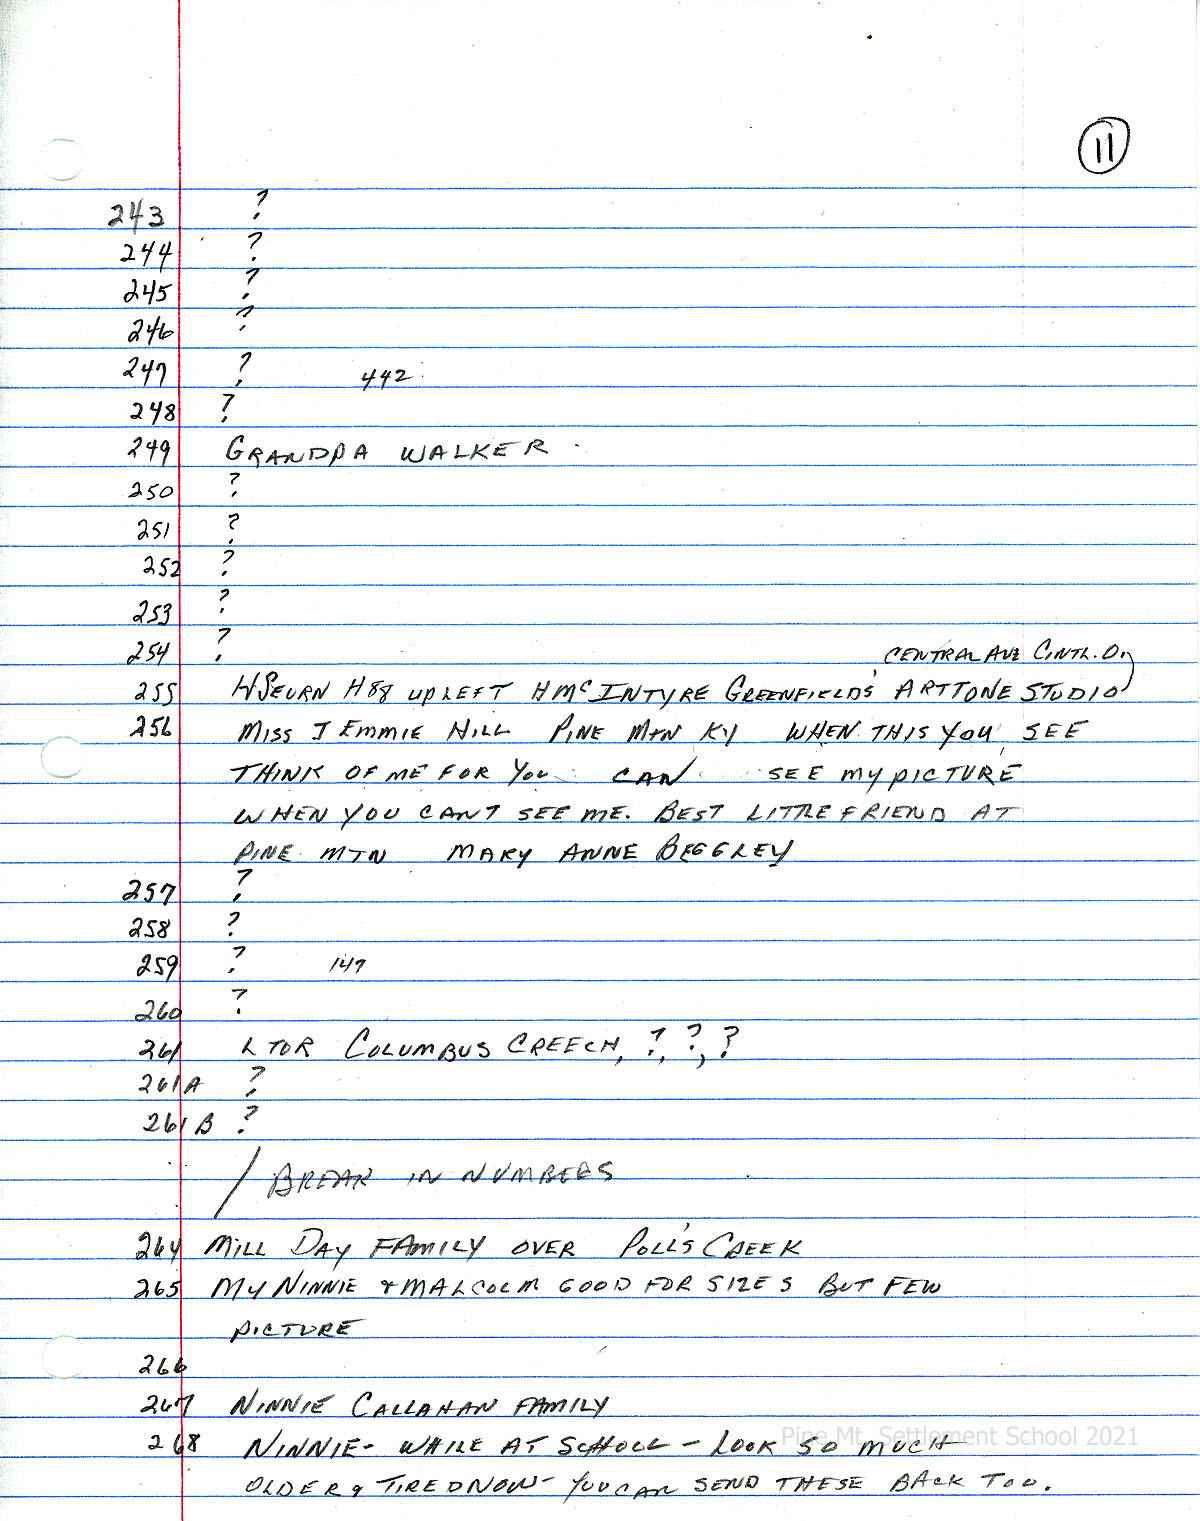 11
243 ?
244 ?
245 ?
246 ?
247 ? 442
248 ?
249 GRANDPA WALKER
250 ?
251 ?
252 ?
253 ?
254 ?
CENTRAL AVE CINTI. O.
255 H88 UP LEFT H MCINTYRE GREENFIELD'S ARTTONE STUDIO
256 MISS J EMMIE HILL PINE MTN KY WHEN THIS YOU SEE
THINK OF ME FOR YOU CAN SEE MY PICTURE
WHEN YOU CANT SEE ME. BEST LITTLE FRIEND AT
PINE MTN MARY ANNE BEGGLEY
257 ?
258 ?
259 ? 147
260 ?
261 L TOR COLUMBUS CREECH, ?, ?, ?
261A ?
261B ?
/ BREAK IN NUMBERS
264 MILL DAY FAMILY OVER POLL'S CREEK
265 MY NINNIE & MALCOLM GOOD FOR SIZES BUT FEW
PICTURE
266
267 NINNIE CALLAHAN FAMILY
268 NINNIE - WHILE AT SCHOLL - LOOK SO MUCH
OLDER & TIRED NOW - YOU CAN SEND THESE BACK TOO.
Pine Mt. Settlement School 2021